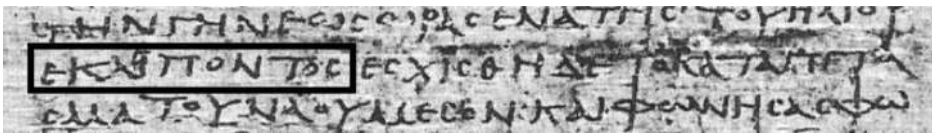 ΤΗΝΓΗΝΕωϹωΡΑϹΕΝΑΤΗϹΤΟΥΗΛΙΟΥ
ΕΚΛΙΠΟΝΤΟϹΕϹΧΙϹΘΗΔΕΤΟΚΑΤΑΠΕΤΑ
ϹΜΑΤΟΥΝΑΟΥΜΕϹΟΝ·ΚΑΙΦωΝΗϹΑϹΦω